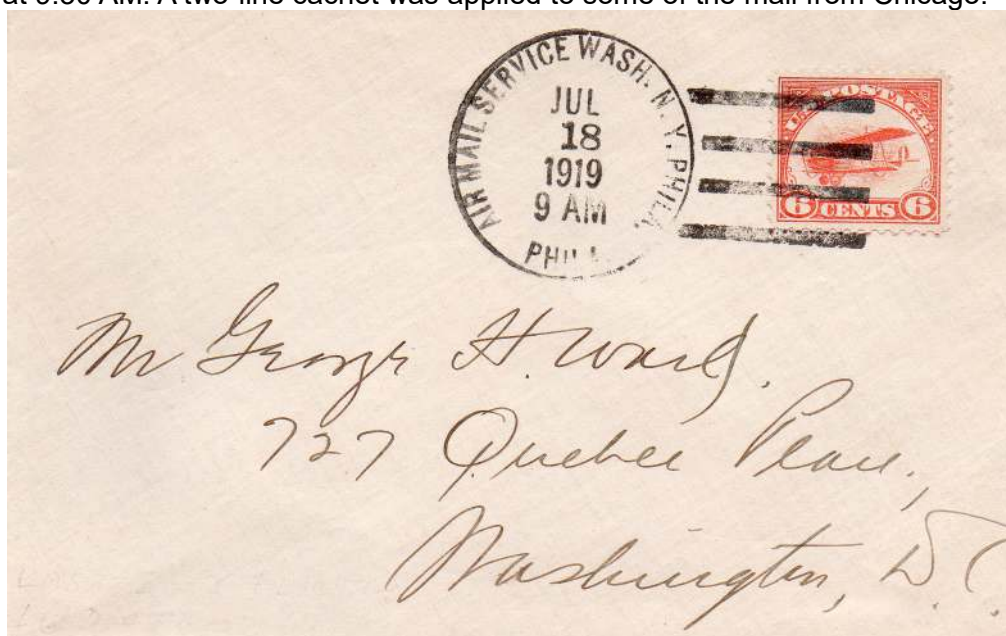 at 9:30 AM. A two-line cachet was applied to some of the mail from Chicago.
AIR MAIL SERVICE WASH. N. Y. PHILA.
JUL
18
1919
9 AM
PHILA.
U.S. POSTAGE
6 CENTS 6
Mr George H. Ward.
727 Quebec Place,
Washington, D.C.